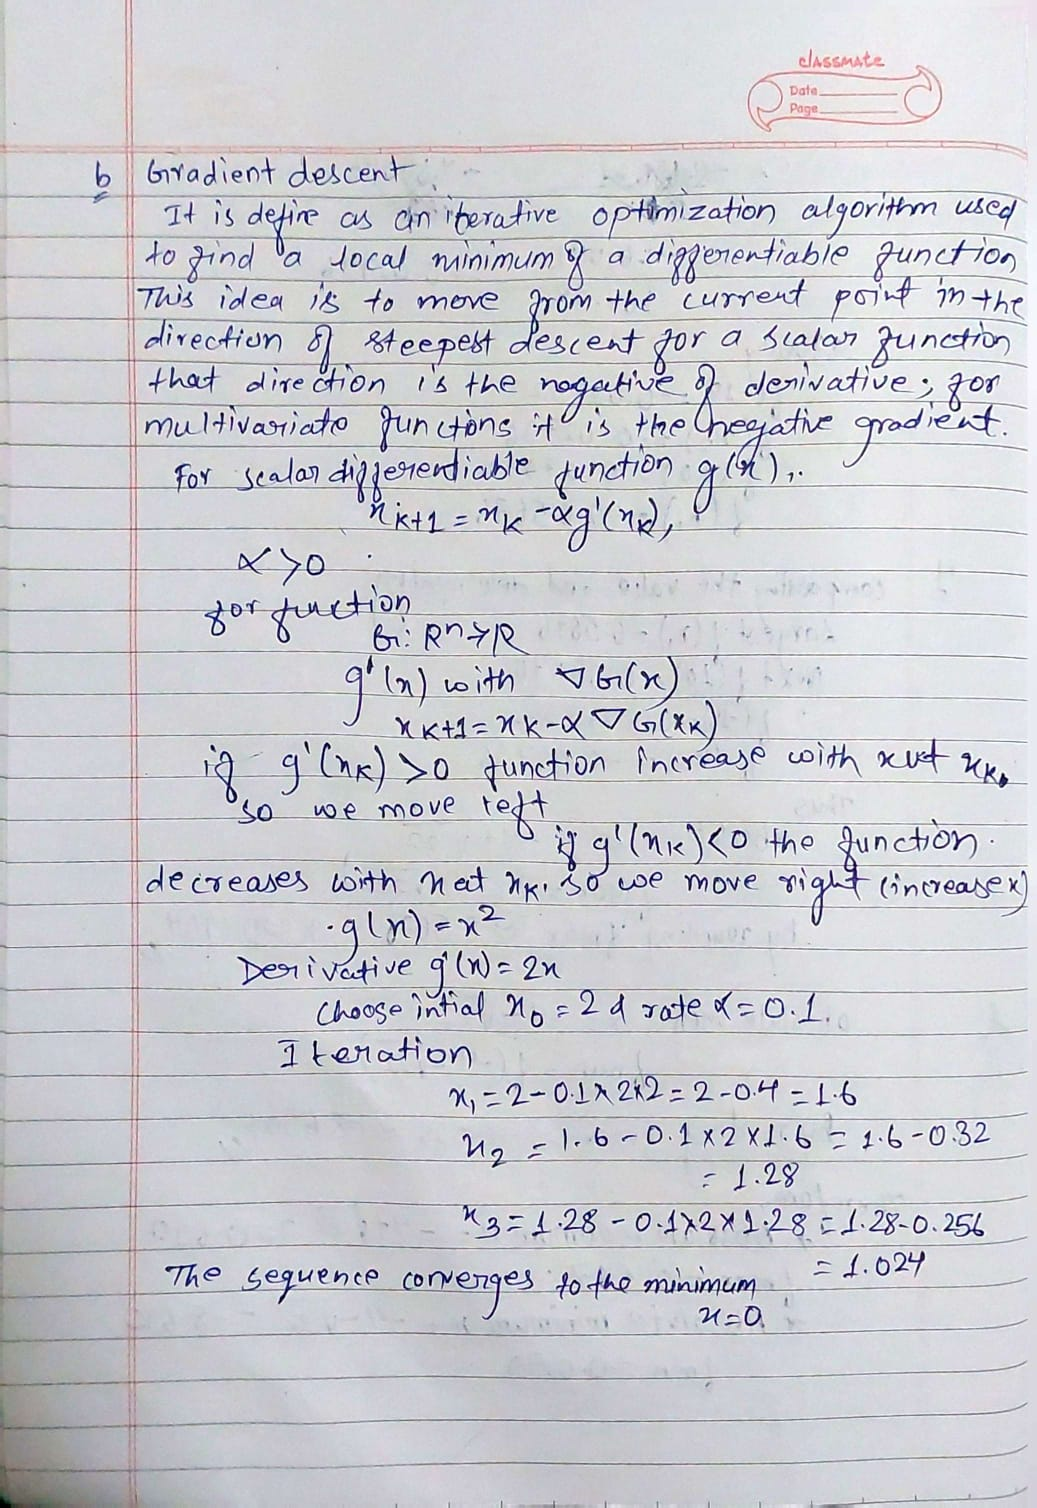 classmate
Date
Page
b Gradient descent
It is define as an iterative optimization algorithm used
to find a local minimum of a differentiable function
This idea is to move from the current point in the
direction of steepest descent for a scalar function
that direction is the nagative of derivative; for
multivariate functions it is the negative gradient.
For scalar differentiable function g(x),
x_{k+1} = x_k - αg'(x_k),
α>0
for function
G: R^n→R
g'(x) with ∇G(x)
x_{k+1} = x_k - α∇G(x_k)
if g'(x_k) >0 function increase with x at x_k,
so we move left
if g'(x_k) <0 the function
decreases with x at x_k, so we move right (increase x)
g(x) = x^2
Derivative g'(x) = 2x
choose intial x_0 = 2 & rate α = 0.1.
Iteration
x_1 = 2 - 0.1×2×2 = 2 - 0.4 = 1.6
x_2 = 1.6 - 0.1×2×1.6 = 1.6 - 0.32
= 1.28
x_3 = 1.28 - 0.1×2×1.28 = 1.28 - 0.256
= 1.024
The sequence converges to the minimum
x=0